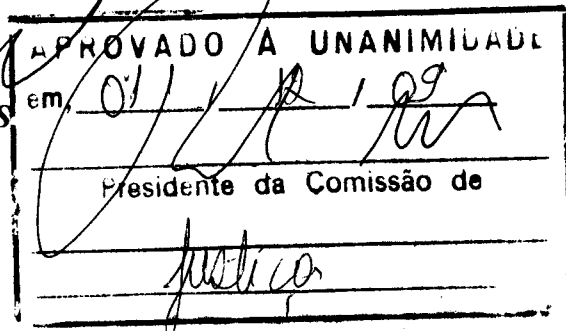 APROVADO A UNANIMIDADE
em, 01 / 12 / 09
Presidente da Comissão de
Justiça